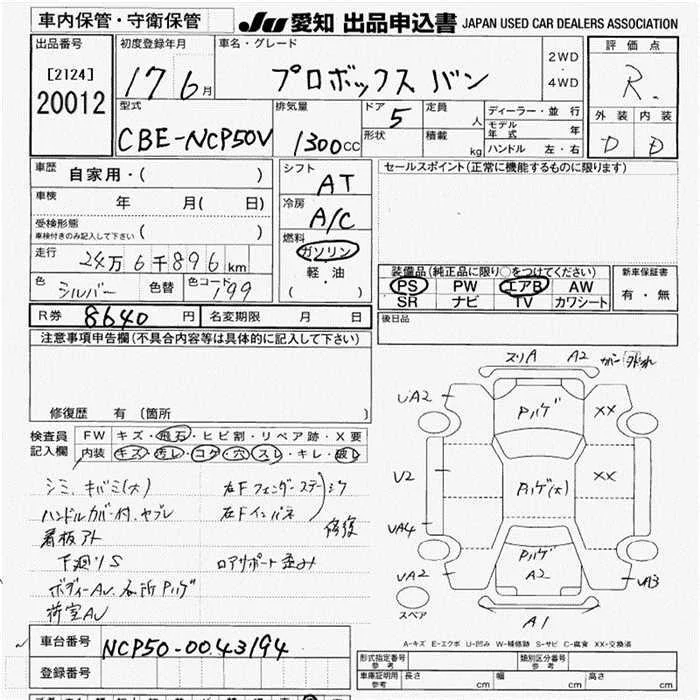 車内保管・守衛保管
JU 愛知 出品申込書 JAPAN USED CAR DEALERS ASSOCIATION
出品番号
[2124]
20012
初度登録年月
17 6月
車名・グレード
プロボックス バン
2WD
・
4WD
評価点
R.
外装 内装
D D
型式
CBE-NCP50V
排気量
1300cc
ドア 5
形状
定員 人
積載 kg
ディーラー・並行
モデル年式 年
ハンドル 左・右
車歴 自家用・( )
車検 年 月( 日)
受検形態
車検付きのみ記入して下さい ( )
走行 24万6千896km
色 シルバー 色替 色コード 199
シフト
AT
冷房
A/C
燃料
ガソリン
軽・油
( ・ )
セールスポイント(正常に機能するものに限ります)
装備品(純正品に限り○をつけてください)
PS PW エアB AW
SR ナビ TV カワシート
新車保証書
有・無
R券 8640円 名変期限 月 日
後日品
注意事項申告欄(不具合内容等は具体的に記入して下さい)
修復歴 有〔箇所 〕
検査員
記入欄
FW キズ・飛石・ヒビ割・リペア跡・X要
内装 キズ・汚レ・コゲ・穴・スレ・キレ・破レ
シミ、キバミ(大)
ハンドルカバー付、ヤブレ
看板アト
下廻りS
ボディーAU、各所Pハゲ
荷室AU
左Fフェンダーステー
左Fインパネ
修復
ロアサポート歪み
スリA A2 カバー外れ
UA2
Pハゲ
XX
U2
Pハゲ(大)
XX
UA4
Pハゲ
UA2
A2
UA3
スペア
A1
A-キズ E-エクボ U-凹み W-補修跡 S-サビ C-腐食 XX-交換済
車台番号 NCP50-0043194
登録番号
形式指定番号
参考
類別区分番号
参考
車庫証明用
参考
長さ cm 幅 cm 高さ cm